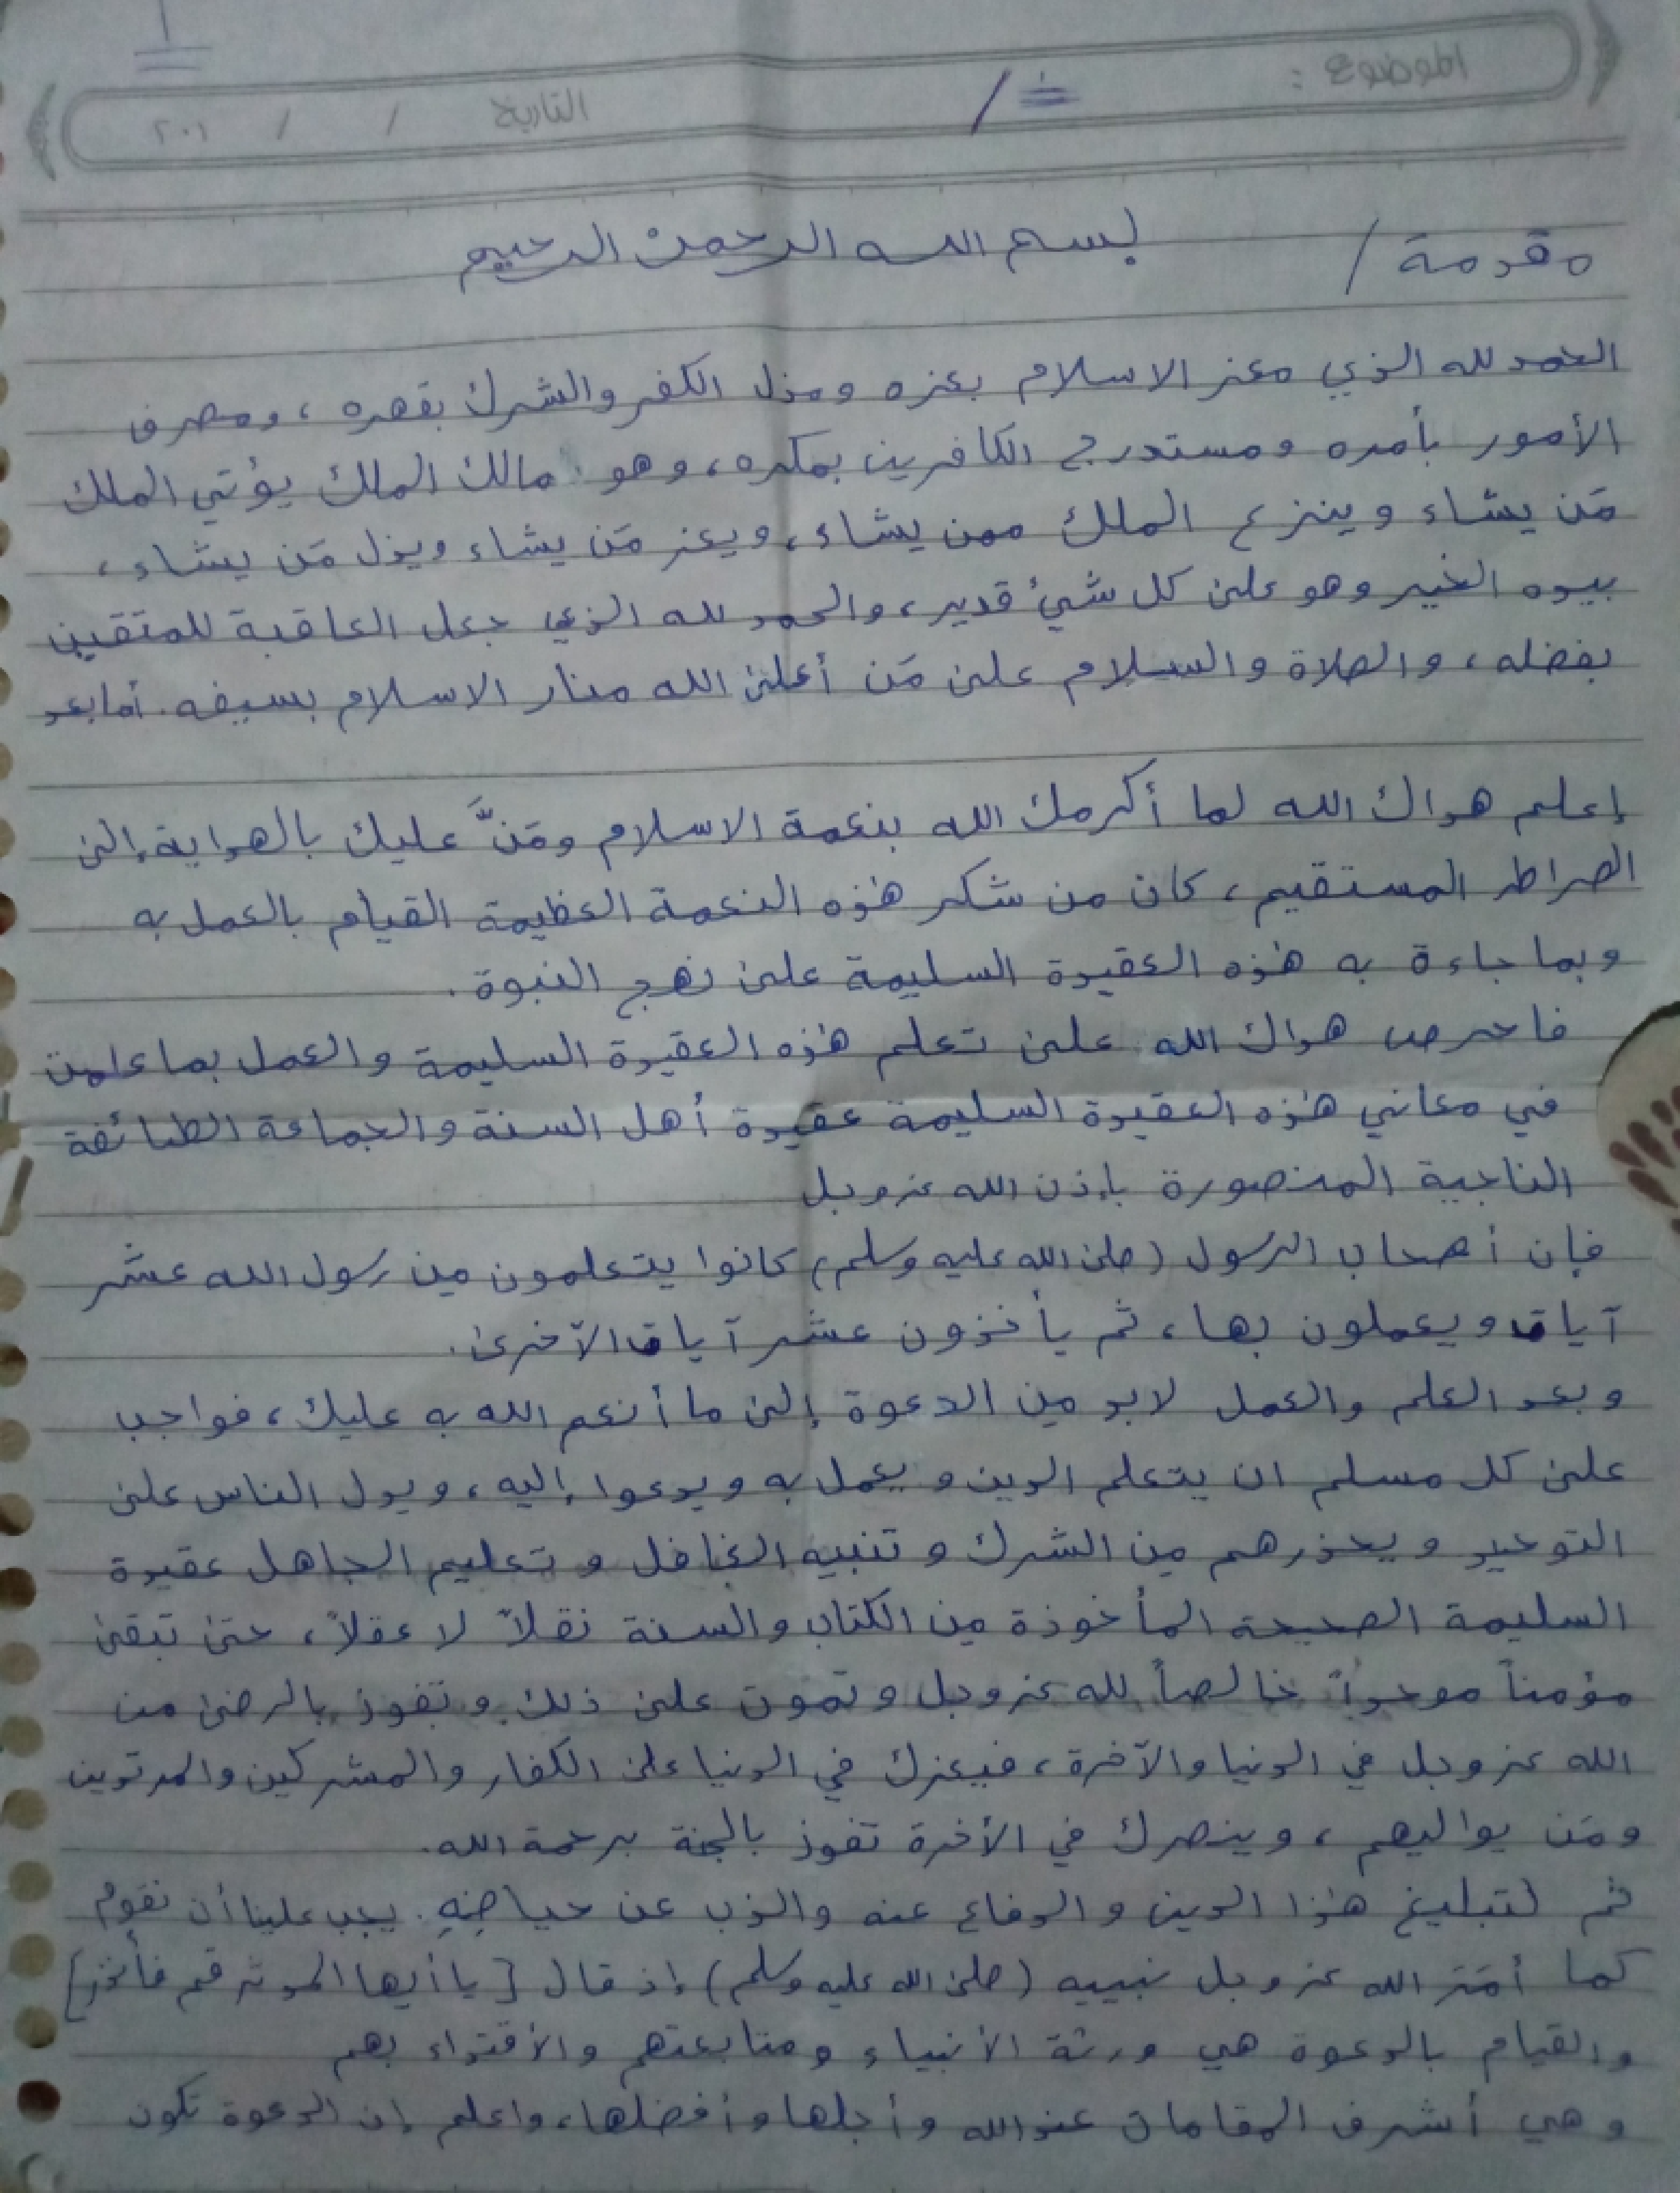 الموضوع :
التاريخ / / ٢٠١
مقدمة / بسم الله الرحمن الرحيم
الحمد لله الذي معز الاسلام بعزه ومذل الكفر والشرك بقهره ، ومصرف
الأمور بأمره ومستدرج الكافرين بمكره ، وهو مالك الملك يؤتي الملك
مَن يشاء وينزع الملك ممن يشاء ، ويعز مَن يشاء ويذل مَن يشاء ،
بيده الخير وهو على كل شيئ قدير ، والحمد لله الذي جعل العاقبة للمتقين
بفضله ، والصلاة والسلام على مَن أعلى الله منار الاسلام بسيفه . أما بعد
إعلم هداك الله لما أكرمك الله بنعمة الاسلام ومَنَّ عليك بالهداية إلى
الصراط المستقيم ، كان من شكر هذه النعمة العظيمة القيام بالعمل به
وبما جاءة به هذه العقيدة السليمة على نهج النبوة .
فاحرص هداك الله على تعلم هذه العقيدة السليمة والعمل بما علمت
في معاني هذه العقيدة السليمة عقيدة أهل السنة والجماعة الطائفة
الناجية المنصورة بإذن الله عزوجل
فإن أصحاب الرسول (صلى الله عليه وسلم) كانوا يتعلمون من رسول الله عشر
آيات ويعملون بها ، ثم يأخذون عشر آيات الآخرى .
وبعد العلم والعمل لابد من الدعوة إلى ما أنعم الله به عليك ، فواجب
على كل مسلم ان يتعلم الدين و يعمل به ويدعوا إليه ، ويدل الناس على
التوحيد ويحذرهم من الشرك و تنبيه الغافل و تعليم الجاهل عقيدة
السليمة الصحيحة المأخوذة من الكتاب والسنة نقلاً لا عقلاً ، حتى تبقى
مؤمناً موحداً خالصاً لله عزوجل وتموت على ذلك وتفوز بالرضى من
الله عزوجل في الدنيا والآخرة ، فيعزك في الدنيا على الكفار والمشركين والمرتدين
ومَن يواليهم ، وينصرك في الأخرة تفوذ بالجنة برحمة الله .
ثم لتبليغ هذا الدين والدفاع عنه والذب عن حياضِهِ . يجب علينا أن نقوم
كما أمَرَ الله عزوجل نبييه (صلى الله عليه وسلم) إذ قال [يا أيها المدثر قم فأنذر]
والقيام بالدعوة هي ورثة الأنبياء ومتابعتهم والأقتداء بهم
وهي أشرف المقامات عند الله وأجلها وأفضلها ، واعلم إن الدعوة تكون